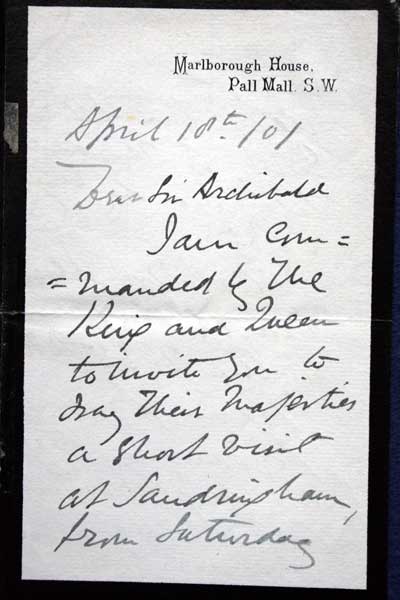 Marlborough House,
Pall Mall. S.W.
April 18th/01
Dear Sir Archibald
I am Com=
=manded by The
King and Queen
to invite you to
pay Their Majesties
a short visit
at Sandringham,
from Saturday